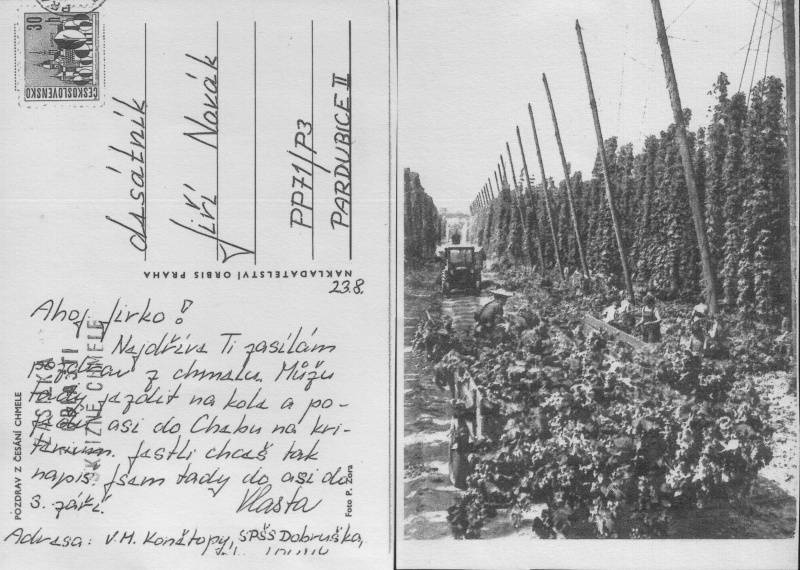 30
h
ČESKOSLOVENSKO
desátník
Jiří Novák
PP71/P3
PARDUBICE II
NAKLADATELSTVÍ ORBIS PRAHA
23.8.
Ahoj Jirko!
Nejdříve Ti zasílám
pozdrav z chmelu. Můžu
tady jezdit na kole a po-
asi do Chebu na kri-
terium. Jestli chceš tak
napiš. Jsem tady do asi do
3. září.
Vlasta
Adresa: V.M. Konětopy, SPŠS Dobruška,
SKLIZNĚ CHMELE
POZDRAV Z ČESÁNÍ CHMELE
Foto P. Zora